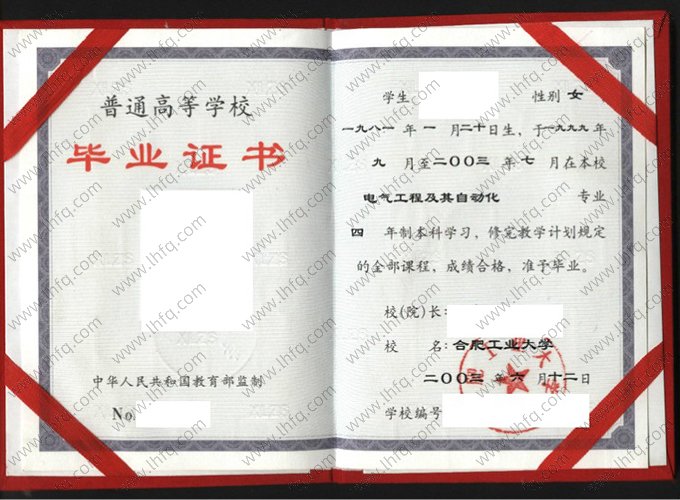 普通高等学校
毕业证书
中华人民共和国教育部监制
No.
学生 性别 女
一九八一 年 一 月二十日生，于一九九九年
九 月至二〇〇三 年 七 月在本校
电气工程及其自动化 专业
四 年制本科学习，修完教学计划规定
的全部课程，成绩合格，准予毕业。
校(院)长:
校 名: 合肥工业大学
二〇〇三 年 六 月 十二 日
学校编号
www.lhfq.com